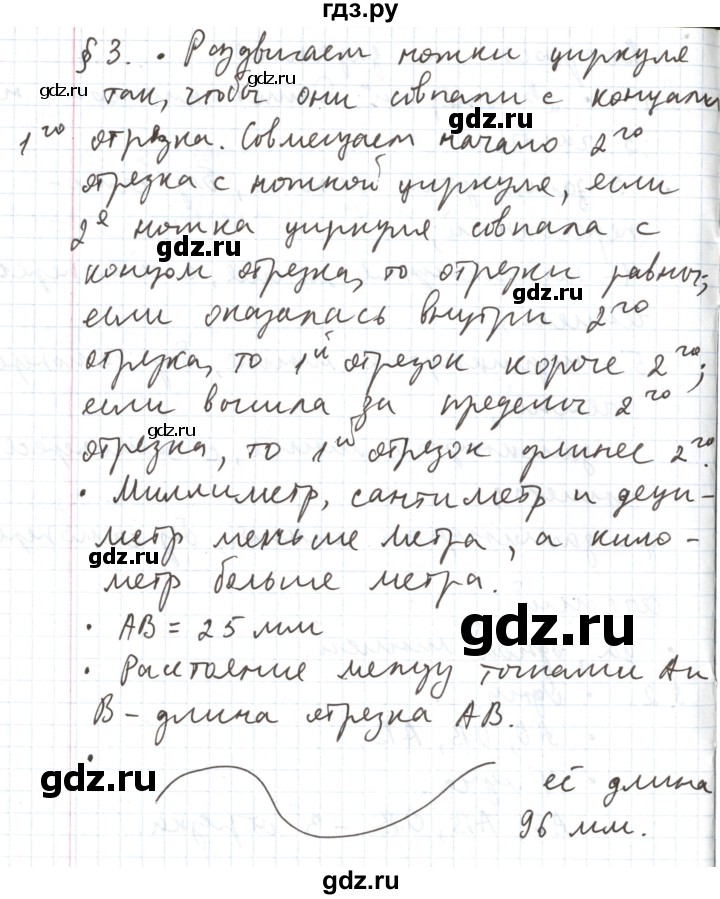 гдз.ру
§ 3. • Раздвигаем ножки циркуля
gdz.ru gdz.ru
так, чтобы они совпали с концами
gdz.ru
1го отрезка. Совмещаем начало 2го
отрезка с ножкой циркуля, если
2я ножка циркуля совпала с
gdz.ru
концом отрезка, то отрезки равны;
gdz.ru
если оказалась внутри 2го
отрезка, то 1й отрезок короче 2го;
если вышла за пределы 2го
gdz.ru
отрезка, то 1й отрезок длинее 2го.
• Миллиметр, сантиметр и деци-
метр меньше метра, а кило-
gdz.ru
метр больше метра.
• AB = 25 мм
gdz.ru
• Расстояние между точками A и
B – длина отрезка AB.
•
gdz.ru
её длина
gdz.ru
96 мм.
gdz.ru